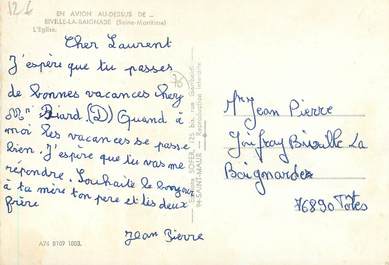 12 6
EN AVION AU-DESSUS DE ...
BIVILLE-LA-BAIGNARDE (Seine-Maritime)
L'Eglise.
Cher Laurent
J'espère que tu passes
de bonnes vacances chez
Mr Biard (D) Quand à
moi les vacances se passe
bien. J'espère que tu vas me
répondre. Souhaite le bonjour
à ta mère ton père et tes deux
frère
Jean Pierre
A76 B107 1003.
94-SAINT-MAUR - Reproduction interdite
Mr Jean Pierre
Joufray Biville La
Baignarde
76890 Totes